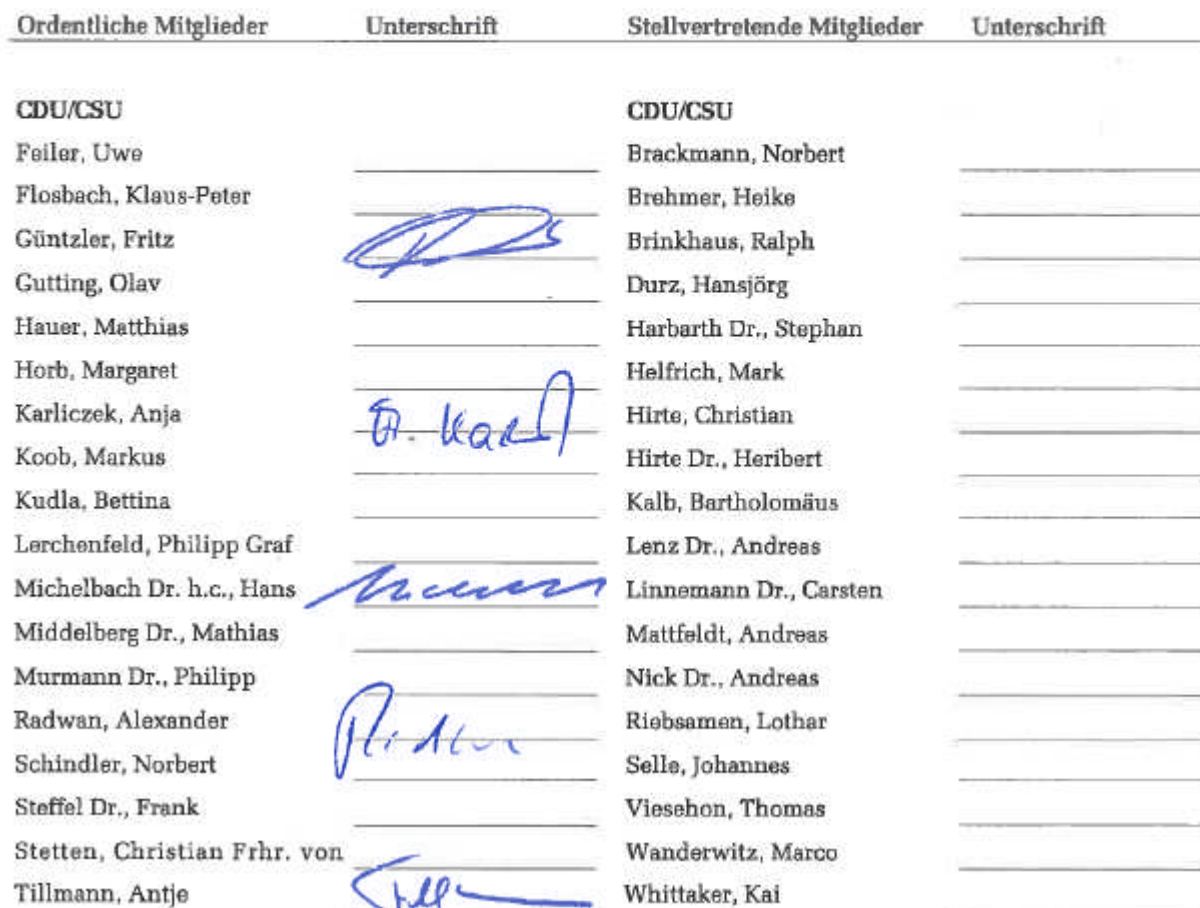 Ordentliche Mitglieder Unterschrift Stellvertretende Mitglieder Unterschrift
CDU/CSU CDU/CSU
Feiler, Uwe Brackmann, Norbert
Flosbach, Klaus-Peter Brehmer, Heike
Güntzler, Fritz Brinkhaus, Ralph
Gutting, Olav Durz, Hansjörg
Hauer, Matthias Harbarth Dr., Stephan
Horb, Margaret Helfrich, Mark
Karliczek, Anja Hirte, Christian
Koob, Markus Hirte Dr., Heribert
Kudla, Bettina Kalb, Bartholomäus
Lerchenfeld, Philipp Graf Lenz Dr., Andreas
Michelbach Dr. h.c., Hans Linnemann Dr., Carsten
Middelberg Dr., Mathias Mattfeldt, Andreas
Murmann Dr., Philipp Nick Dr., Andreas
Radwan, Alexander Riebsamen, Lothar
Schindler, Norbert Selle, Johannes
Steffel Dr., Frank Viesehon, Thomas
Stetten, Christian Frhr. von Wanderwitz, Marco
Tillmann, Antje Whittaker, Kai